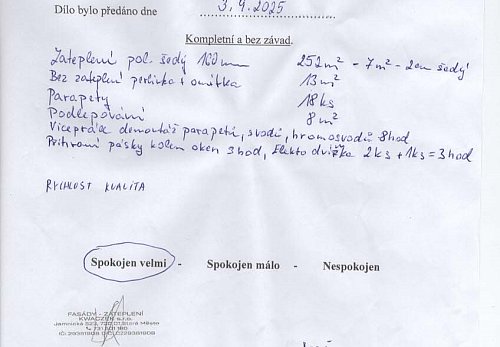 Dílo bylo předáno dne 3.9.2025
Kompletní a bez závad.
Zateplení pol. šedý 160mm 252m² - 7m² - 2cm šedý
Bez zateplení perlinka + omítka 13m²
Parapety 18ks
Podlepování 8m²
Vícepráce demontáž parapetů, svodů, hromosvodů 8hod
Přihraní pásky kolem oken 3hod, Elekto dvířka 2ks + 1ks = 3hod
RYCHLOST KVALITA
Spokojen velmi - Spokojen málo - Nespokojen
FASÁDY - ZATEPLENÍ
KWACZEK s.r.o.
Jamnická 523, 730 01 Stará Město